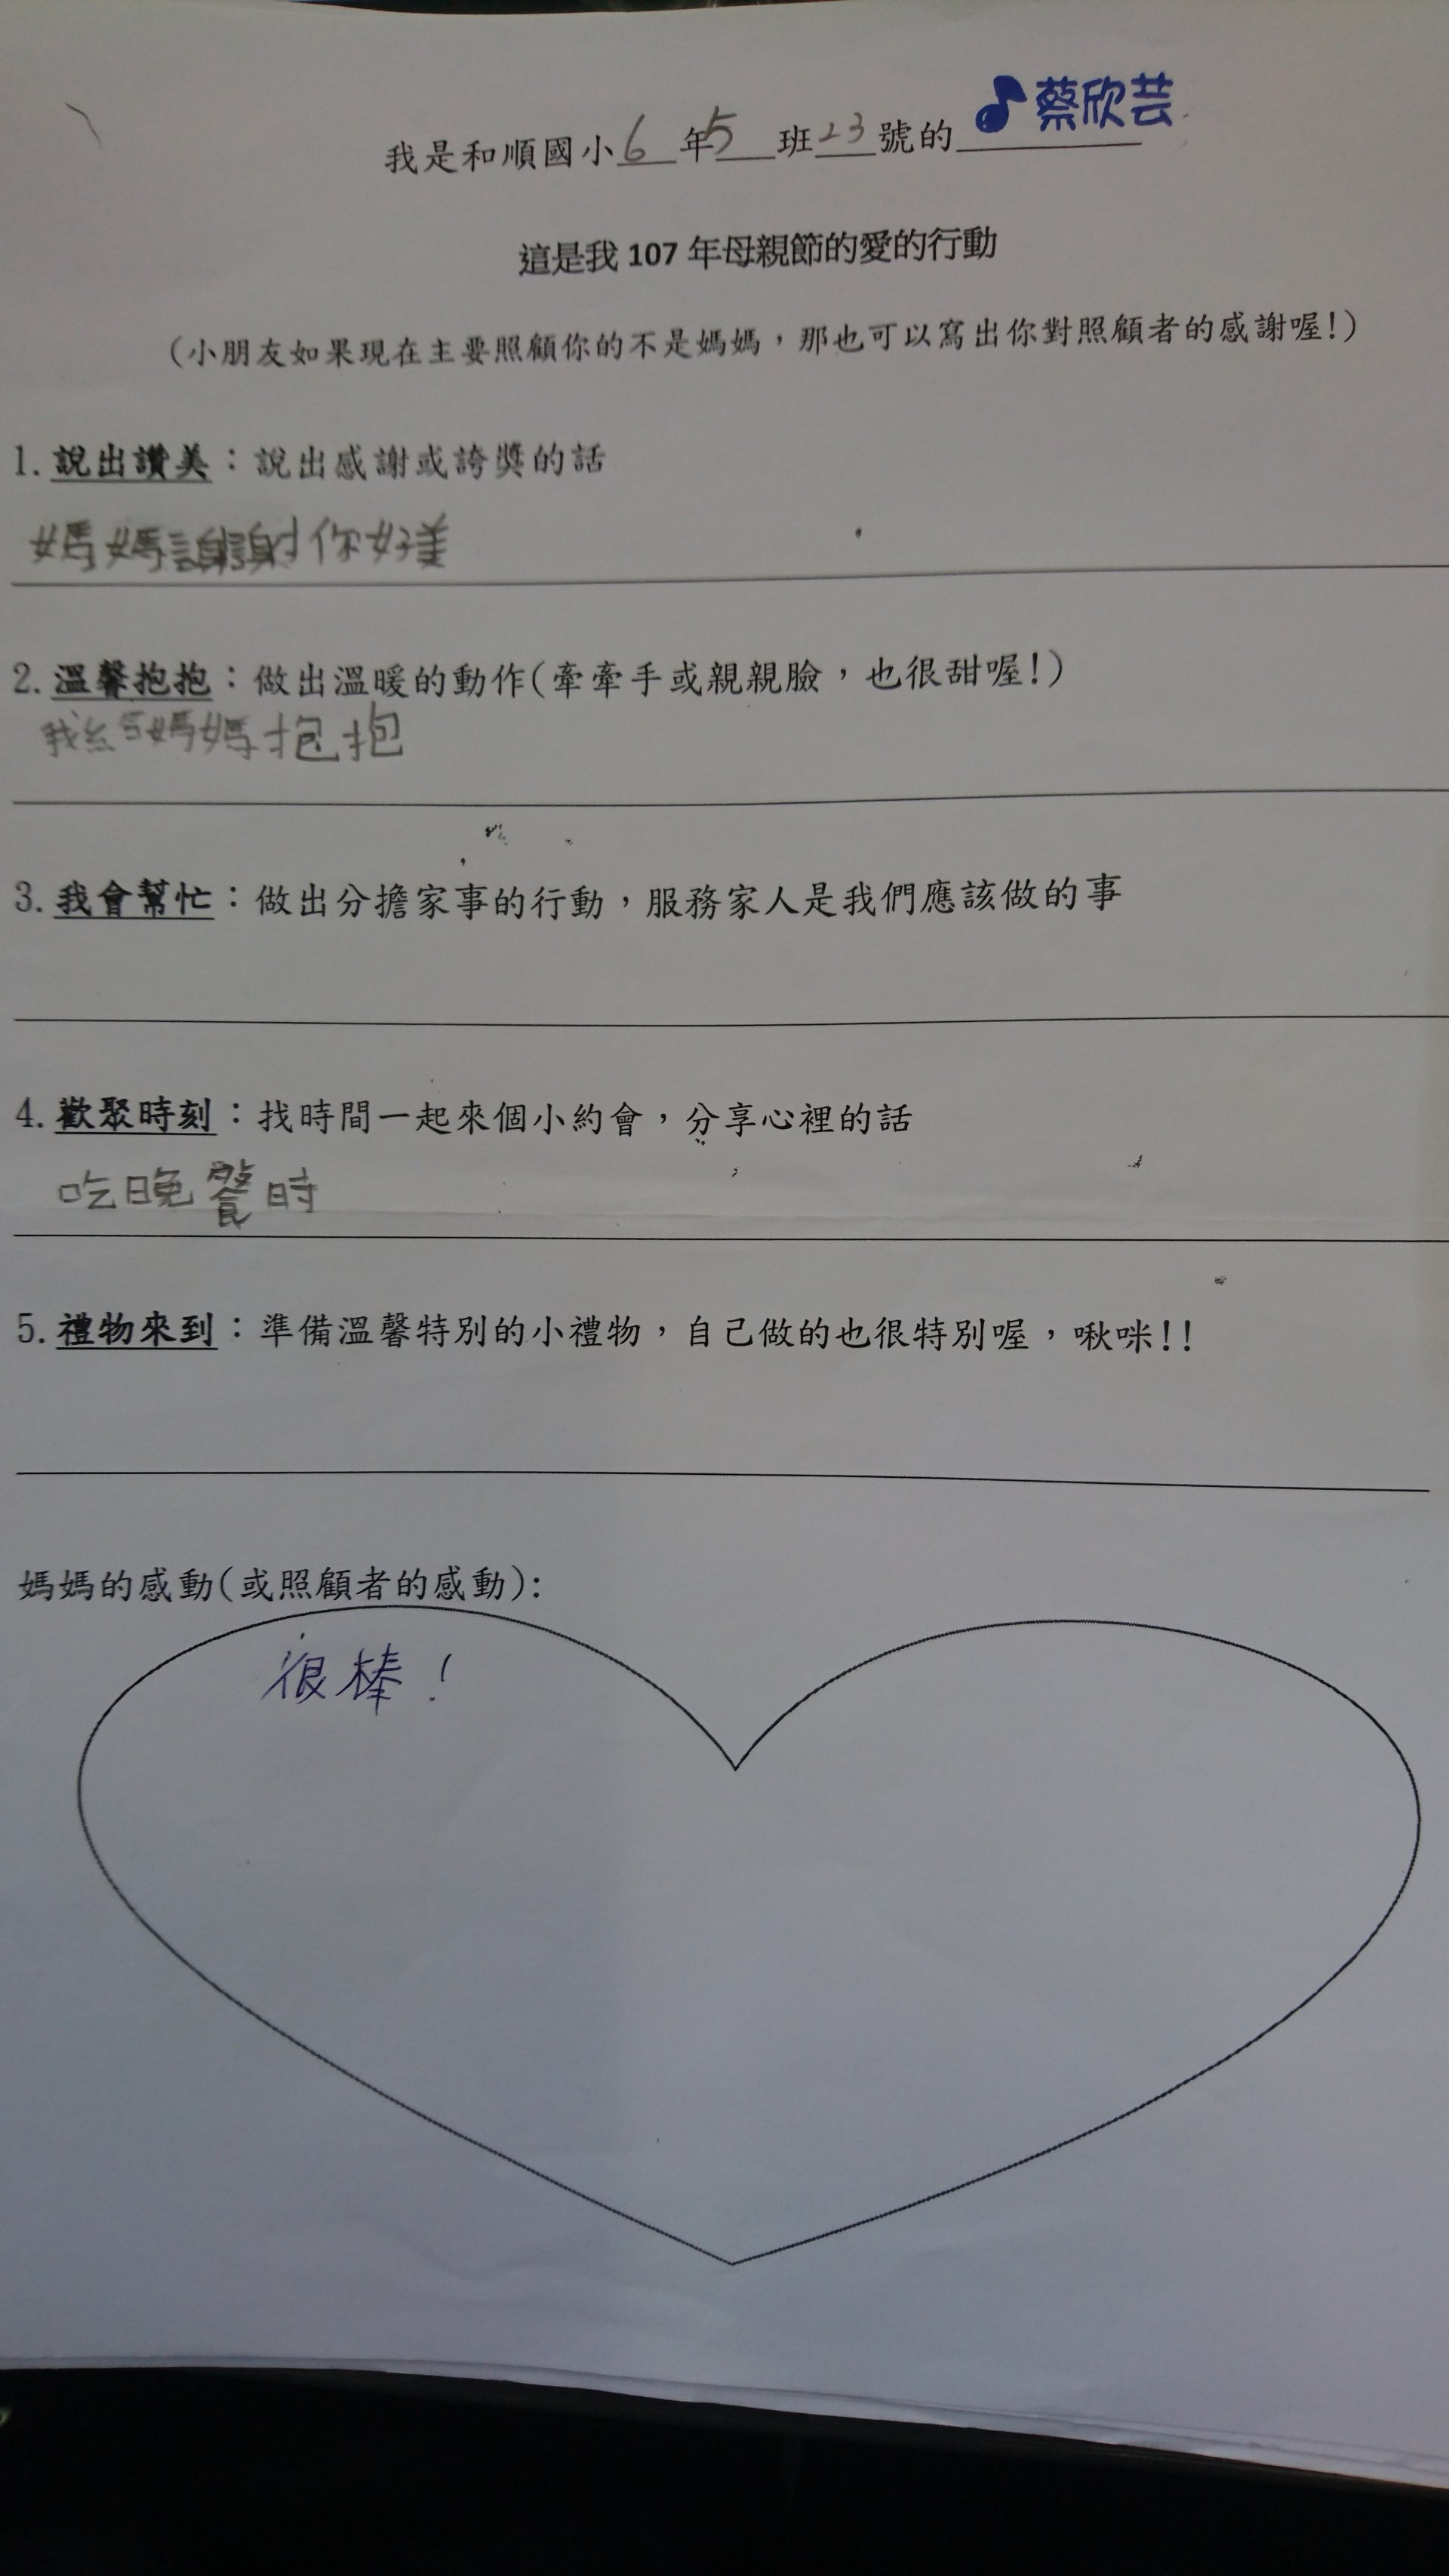 我是和順國小6年5班23號的蔡欣芸
這是我107年母親節的愛的行動
(小朋友如果現在主要照顧你的不是媽媽，那也可以寫出你對照顧者的感謝喔!)
1.說出讚美：說出感謝或誇獎的話
媽媽謝謝你好美
2.溫馨抱抱：做出溫暖的動作(牽牽手或親親臉，也很甜喔!)
我給媽媽抱抱
3.我會幫忙：做出分擔家事的行動，服務家人是我們應該做的事
4.歡聚時刻：找時間一起來個小約會，分享心裡的話
吃晚餐時
5.禮物來到：準備溫馨特別的小禮物，自己做的也很特別喔，啾咪!!
媽媽的感動(或照顧者的感動):
很棒！